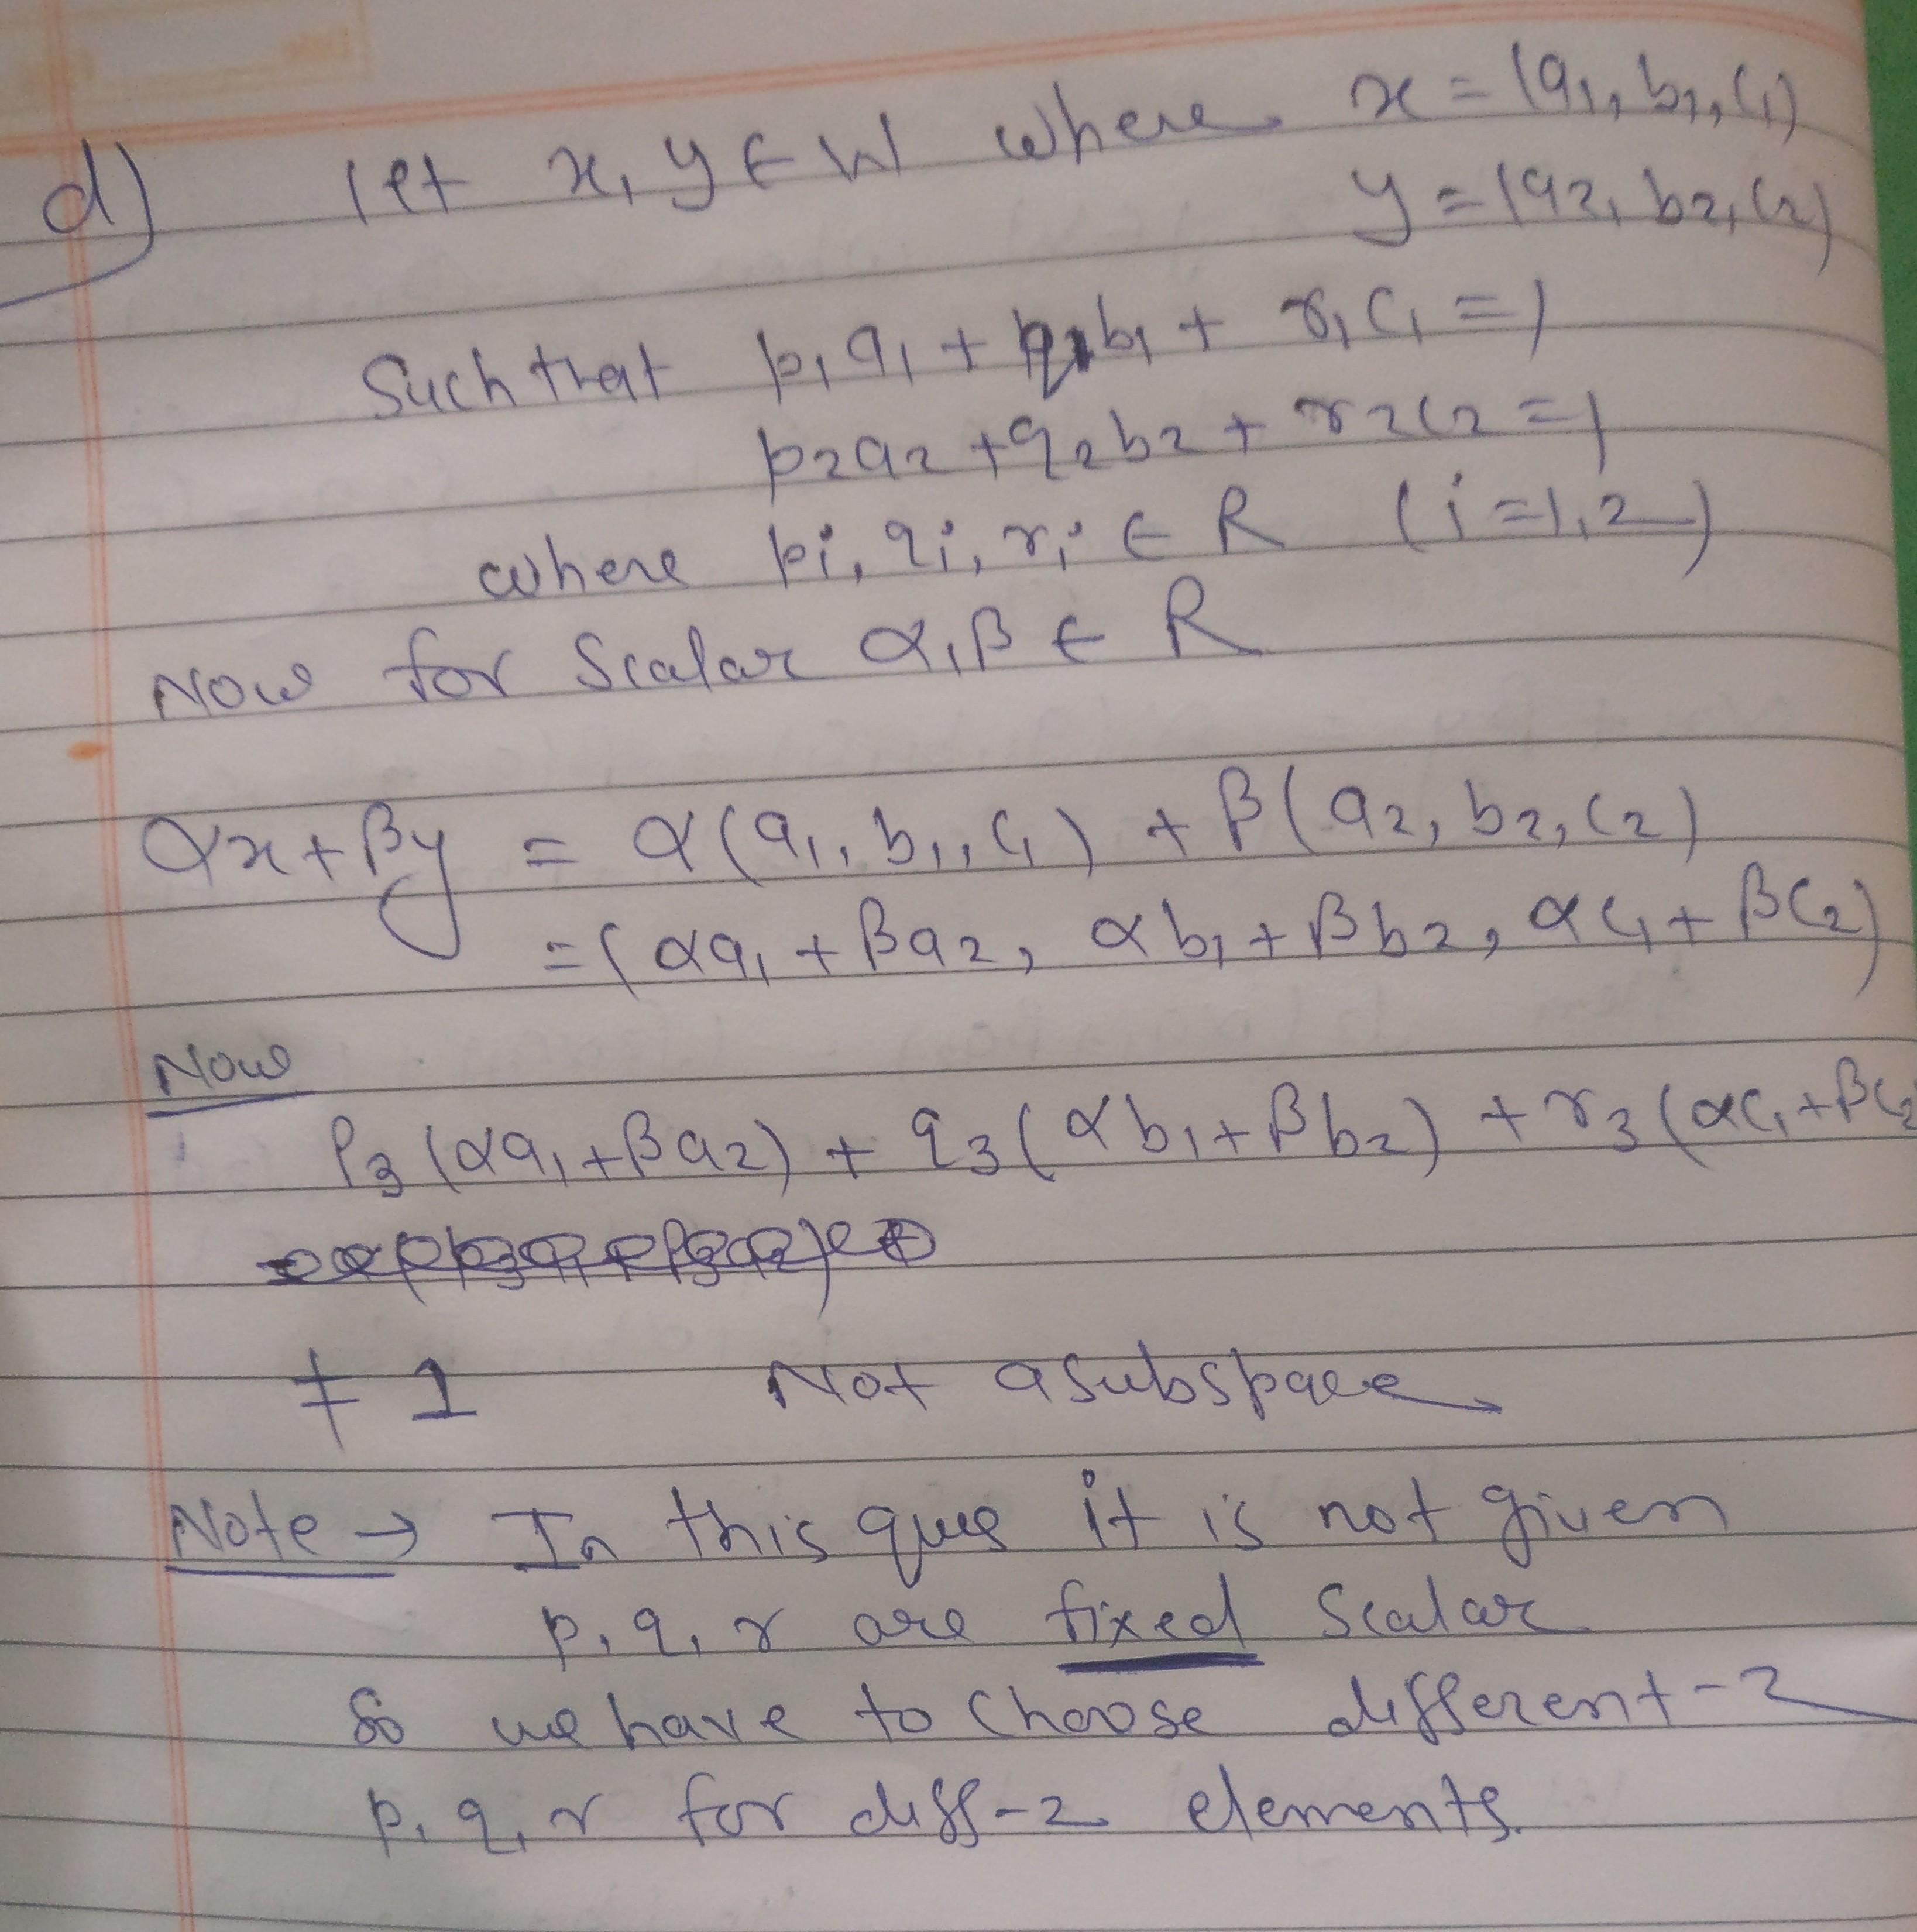 d) let x, y ∈ W where x = (a1, b1, c1)
y = (a2, b2, c2)
Such that p1a1 + q1b1 + r1c1 = 1
p2a2 + q2b2 + r2c2 = 1
where pi, qi, ri ∈ R (i=1,2)
Now for Scalar α, β ∈ R
αx + βy = α(a1, b1, c1) + β(a2, b2, c2)
= (αa1 + βa2, αb1 + βb2, αc1 + βc2)
Now
P3(αa1 + βa2) + q3(αb1 + βb2) + r3(αc1 + βc2
≠ 1 Not a subspace
Note → In this ques it is not given
p, q, r are fixed Scalar
So we have to choose different-2
p, q, r for diff-2 elements.